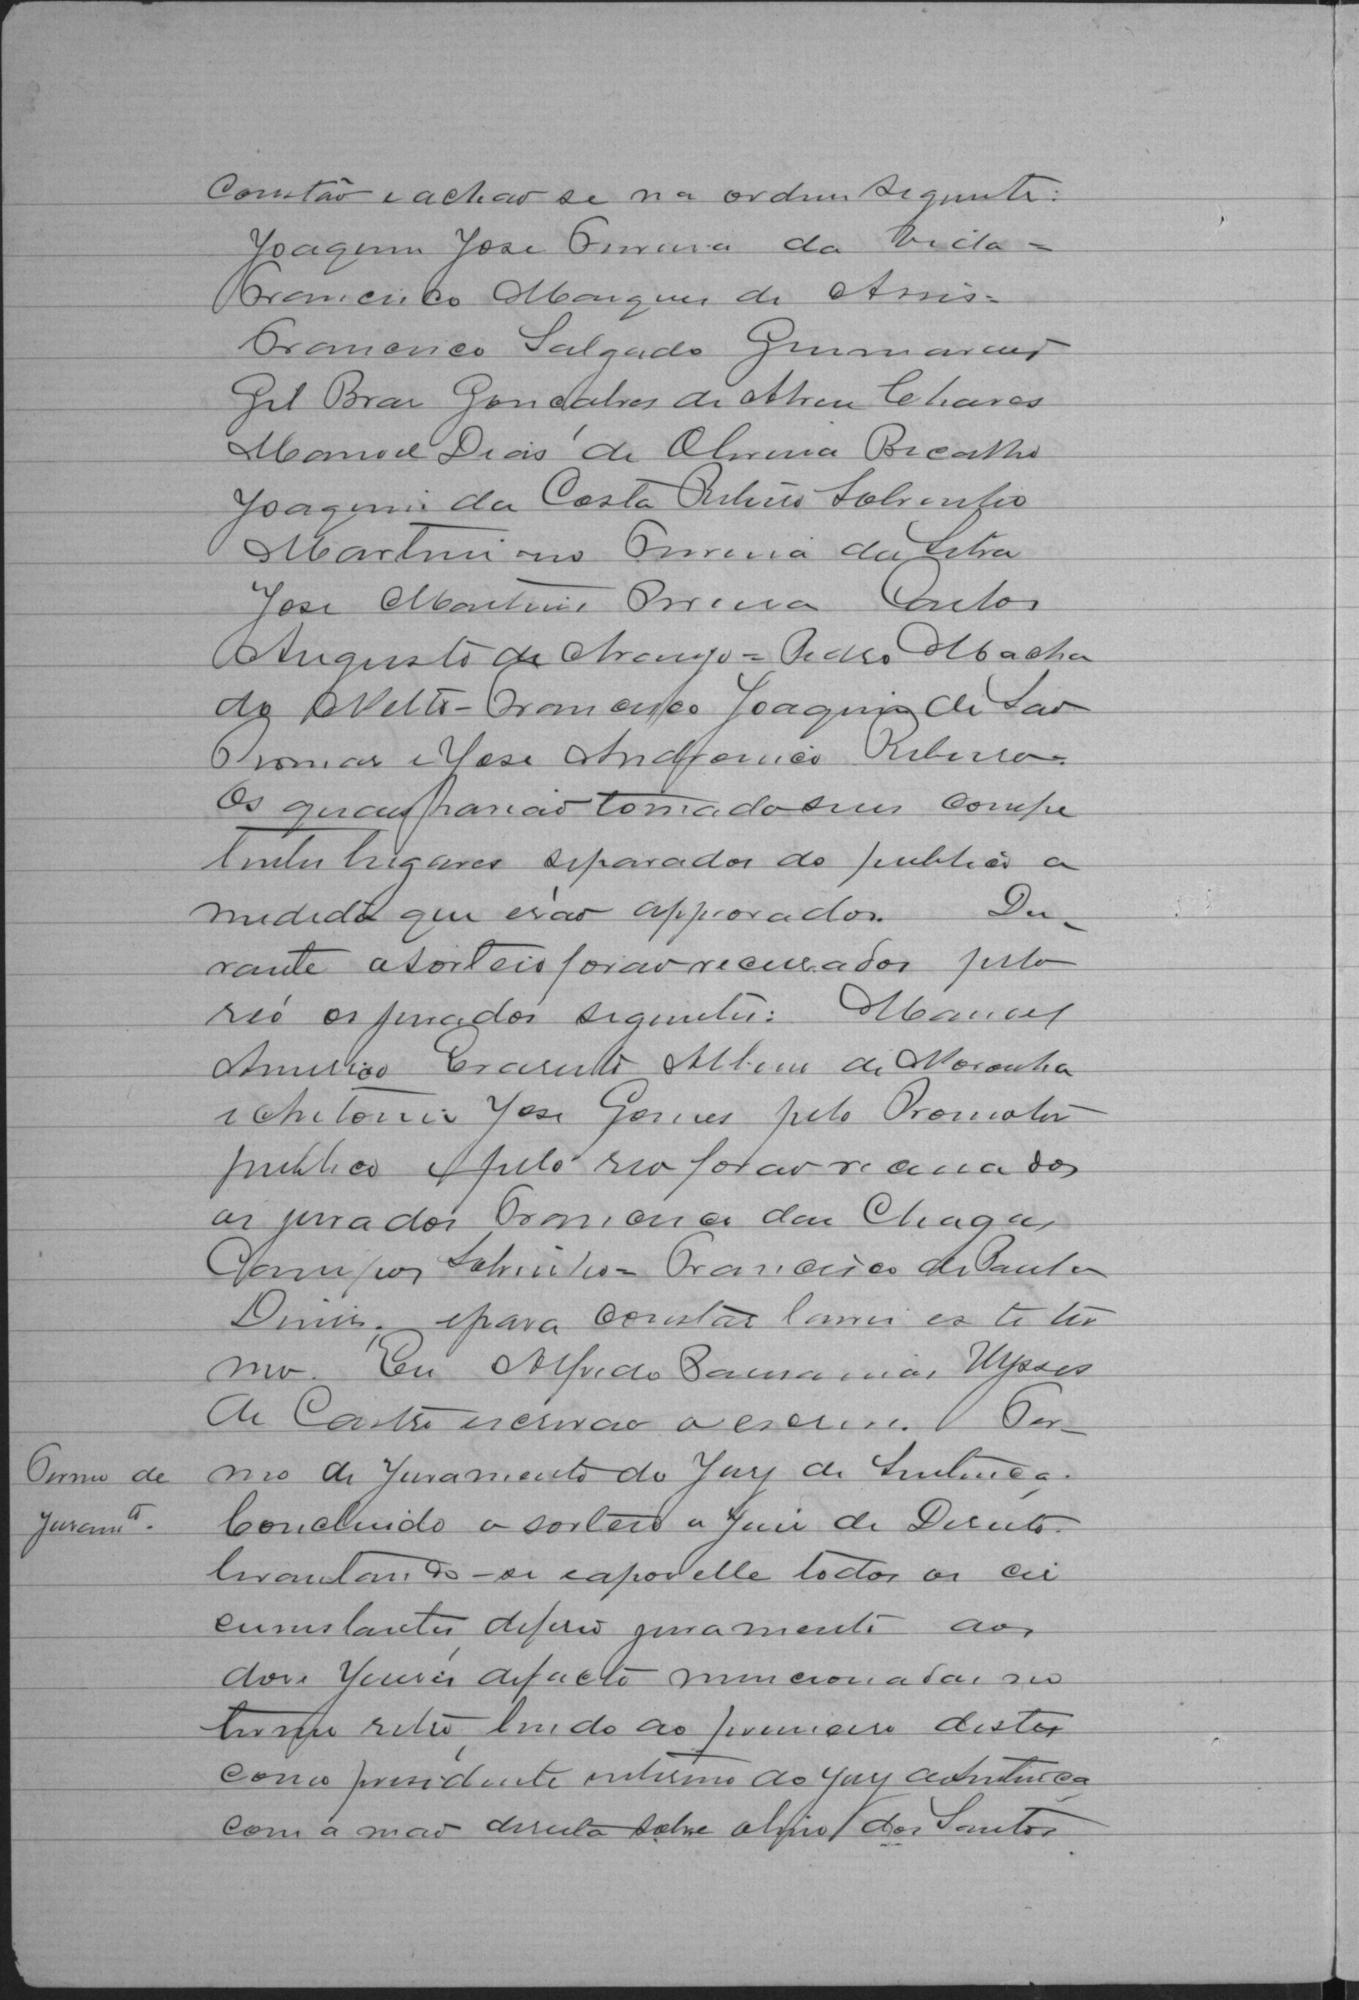 Constão e achão se na ordem seguinte:
Joaquim José Ferreira da Veiga =
Francisco Marques de Assis =
Francisco Salgado Guimarães
Gil Braz Gonçalves de Abreu Chaves
Manoel Dias de Oliveira Bicalho
Joaquim da Costa Ribeiro Sobrinho
Martiniano Ferreira da Silva
José Martins Pereira Carlos
Augusto de Araujo = Pedro Macha
do Netto = Francisco Joaquim de São
Thomas e José Andronico Ribeiro =
Os quaes tomado seus compe
tentes lugares separados do publico a
medida que erão approvados. Du_
rante o sorteio forão recusados pelo
reó os jurados seguintes: Manoel
Americo Erasmo Albino de Noronha
e Antonio José Gomes pelo Promotor
publico e pelo reo forão recusados
os jurados Francisco das Chagas
Campos Sobrinho = Francisco de Paula
Dinis, e para constar lavrei este ter
mo. Eu Alfredo Pausanias Ulysses
de Castro escrivão o escrevi. Ter_
Termo de
Juram.to
mo de Juramento do Jury de Sentença.
Concluido o sorteio o Juiz de Direito
levantando-se e apoz elle todos os cir
cumstantes, deferio juramento aos
doze Juizes de facto mencionados no
termo retro, lendo ao primeiro destes
como presidente interino do Jury de Sentença
com a mão direita sobre o livro dos Santos